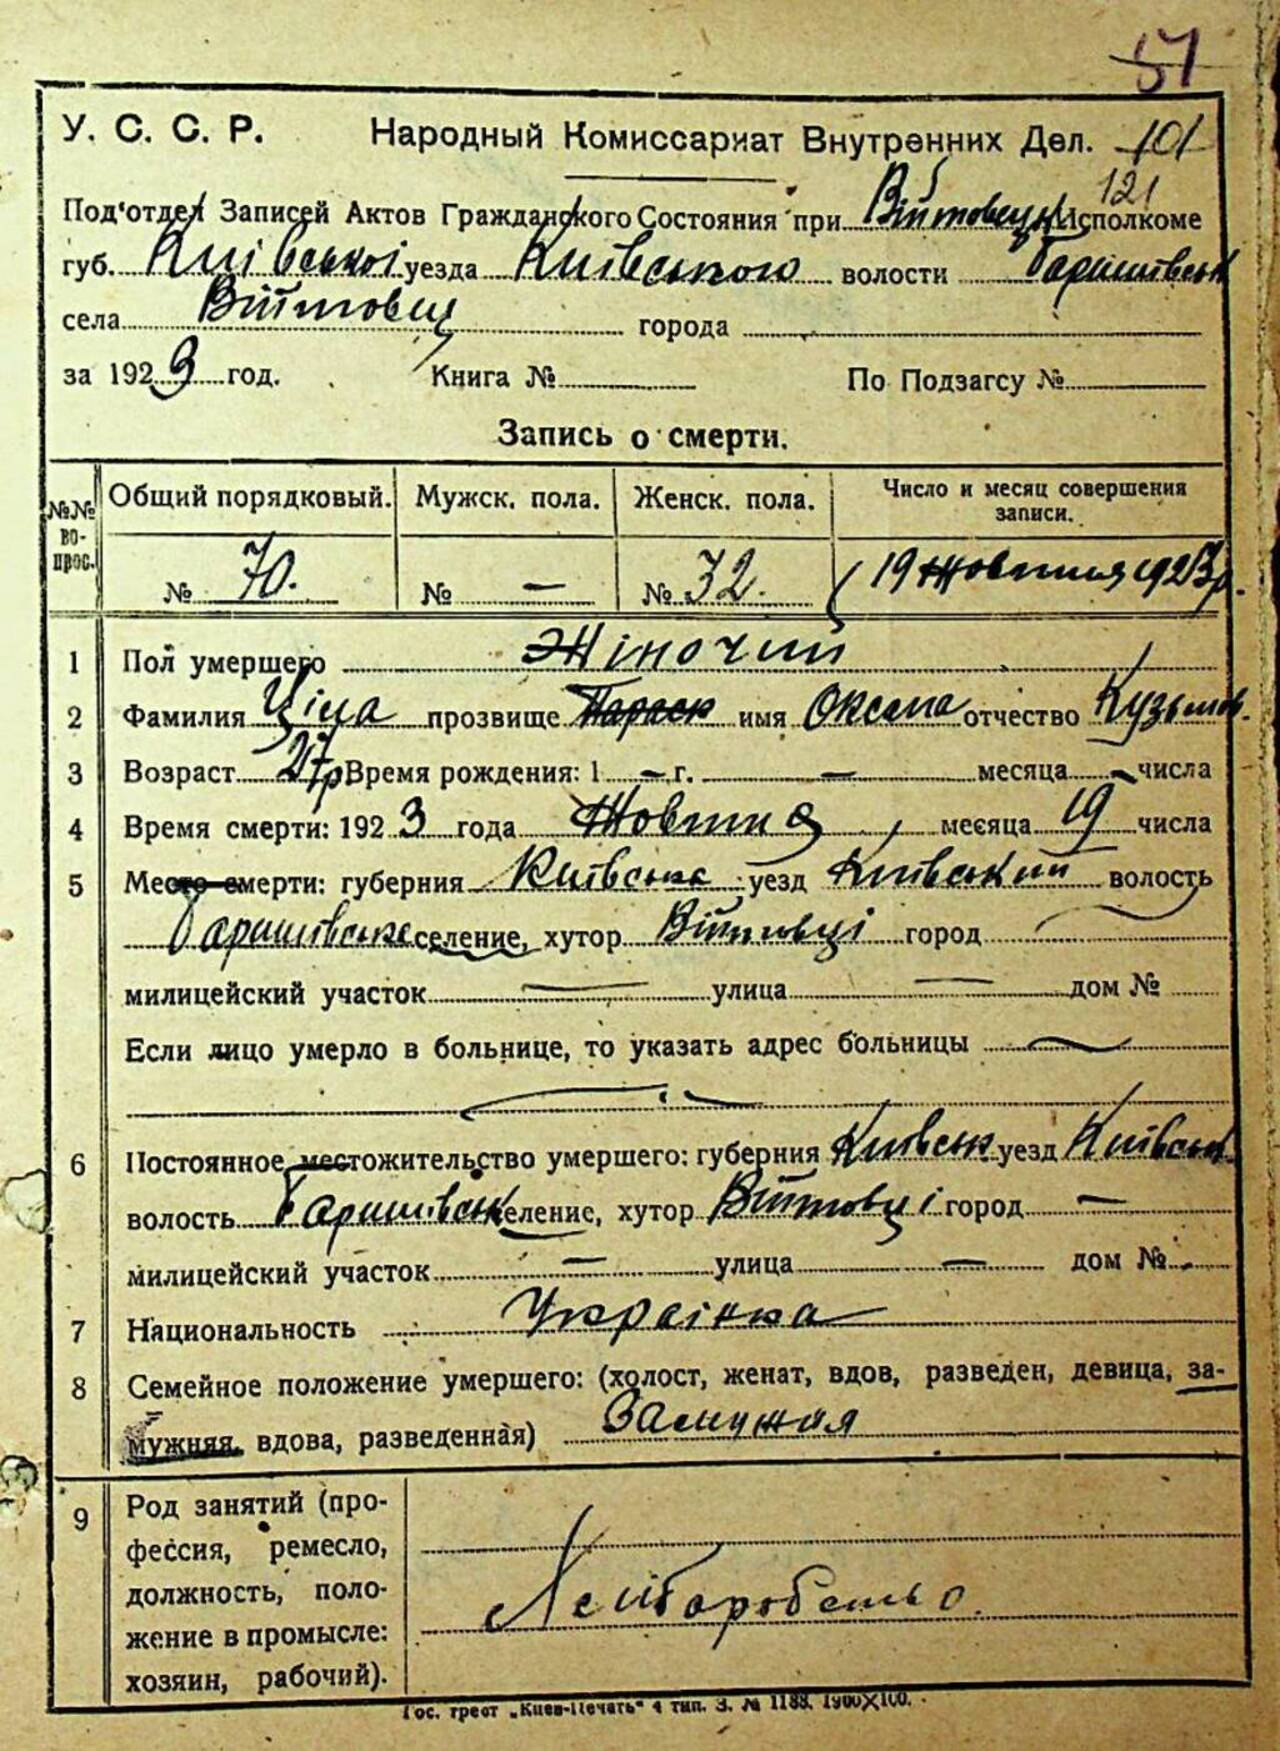 57
У. С. С. Р. Народный Комиссариат Внутренних Дел. 101
121
Под'отдел Записей Актов Гражданского Состояния при Війтовецк Исполкоме
губ. Київської уезда Київського волости Баришівськ
села Війтовці города
за 1923 год. Книга № По Подзагсу №
Запись о смерти.
№№ вопрос. Общий порядковый. Мужск. пола. Женск. пола. Число и месяц совершения записи.
№ 70. № — № 32. 19 Жовтня 1923 р.
1 Пол умершего Жіночий
2 Фамилия прозвище имя Оксана отчество Кузьмов.
3 Возраст 27 р Время рождения: 1 — г. — месяца — числа
4 Время смерти: 1923 года Жовтня месяца 19 числа
5 Место смерти: губерния Київська уезд Київський волость
Баришівське селение, хутор Війтовці город
милицейский участок — улица — дом №
Если лицо умерло в больнице, то указать адрес больницы —
6 Постоянное местожительство умершего: губерния Київськ уезд Київськ
волость Баришівськ селение, хутор Війтовці город —
милицейский участок — улица — дом №
7 Национальность Українка
8 Семейное положение умершего: (холост, женат, вдов, разведен, девица, за-
мужняя, вдова, разведенная) Замужня
9 Род занятий (про-
фессия, ремесло,
должность, поло-
жение в промысле:
хозяин, рабочий).
Хліборобство.
Гос. трест „Киев-Печать" 4 тип. З. № 1188. 1900×100.